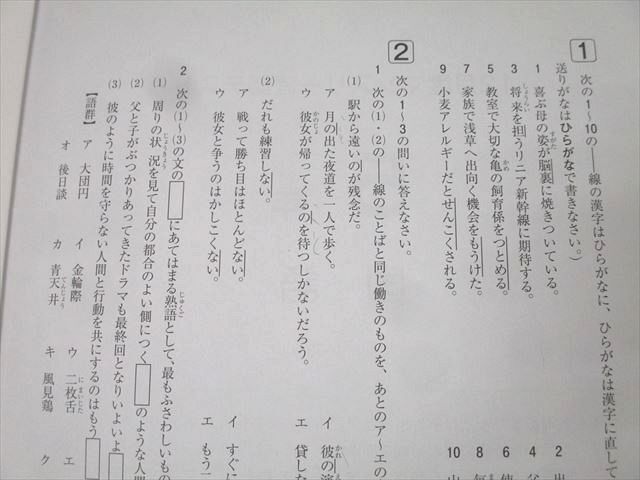 1 次の1～10の――線の漢字はひらがなに、ひらがなは漢字に直して
送りがなはひらがなで書きなさい。）
1 喜ぶ母の姿が脳裏に焼きついている。
2 出
3 将来を担うリニア新幹線に期待する。
4 父
5 教室で大切な亀の飼育係をつとめる。
6 使
7 家族で浅草へ出向く機会をもうけた。
8 毎
9 小麦アレルギーだとせんこくされる。
10 山
2 次の1～3の問いに答えなさい。
1 次の(1)・(2)の――線のことばと同じ働きのものを、あとのア～エの
(1) 駅から遠いのが残念だ。
ア 月の出た夜道を一人で歩く。
イ 彼の演
ウ 彼女が帰ってくるのを待つしかないだろう。
エ 貸した
(2) だれも練習しない。
ア 戦って勝ち目はほとんどない。
イ すぐに
ウ 彼女と争うのはかしこくない。
エ もう一
2 次の(1)～(3)の文の□にあてはまる熟語として、最もふさわしいもの
(1) 周りの状況を見て自分の都合のよい側につく□のような人間
(2) 父と子がぶつかりあってきたドラマも最終回となりいよいよ□
(3) 彼のように時間を守らない人間と行動を共にするのはもう□
【語群】
ア 大団円 イ 金輪際 ウ 二枚舌 エ
オ 後日談 カ 青天井 キ 風見鶏 ク